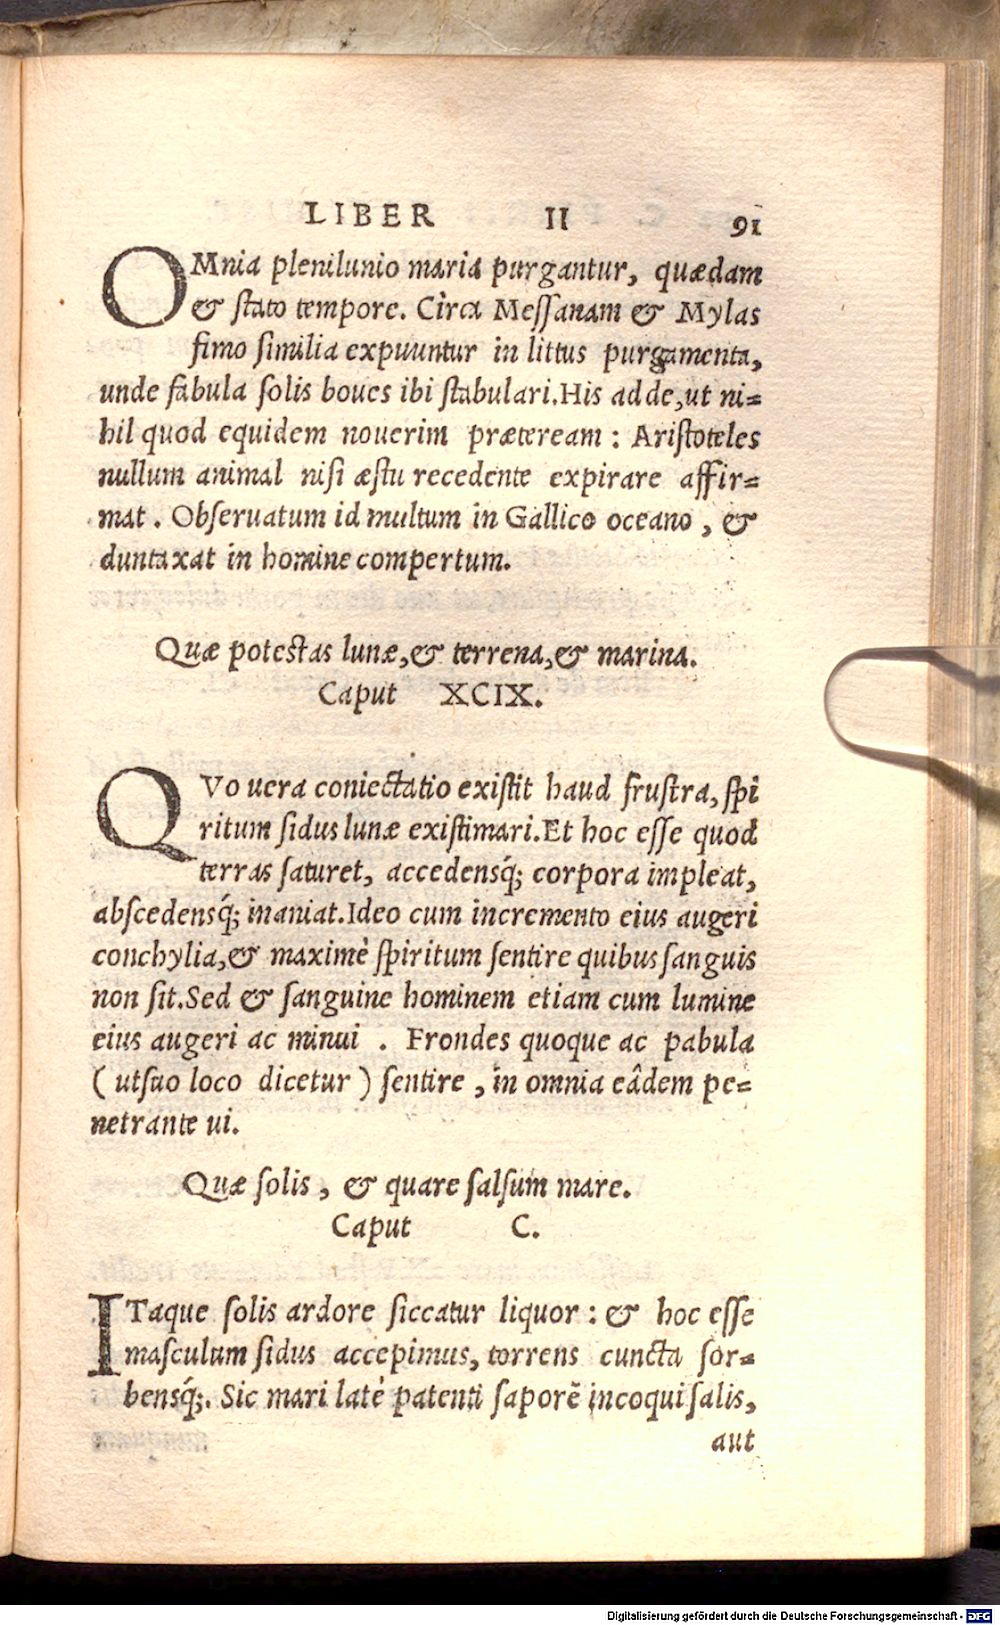 LIBER II 91
OMnia plenilunio maria purgantur, quædam
& ſtato tempore. Circa Meſſanam & Mylas
fimo ſimilia expuuntur in littus purgamenta,
unde fabula ſolis boues ibi ſtabulari.His adde,ut ni-
hil quod equidem nouerim præteream : Ariſtoteles
nullum animal niſi æſtu recedente expirare affir-
mat . Obſeruatum id multum in Gallico oceano , &
duntaxat in homine compertum.
Quæ potestas lunæ,& terrena,& marina.
Caput XCIX.
QVo uera coniectatio exiſtit haud fruſtra, ſpi
ritum ſidus lunæ exiſtimari.Et hoc eſſe quod
terras saturet, accedensq́; corpora impleat,
abſcedensq́; inaniat.Ideo cum incremento eius augeri
conchylia,& maximè ſpiritum ſentire quibus ſanguis
non ſit.Sed & ſanguine hominem etiam cum lumine
eius augeri ac minui . Frondes quoque ac pabula
( ut suo loco dicetur ) ſentire , in omnia eâdem pe-
netrante ui.
Quæ ſolis , & quare ſalſum mare.
Caput C.
ITaque ſolis ardore ſiccatur liquor : & hoc eſſe
maſculum ſidus accepimus, torrens cuncta ſor-
bensq́;. Sic mari latè patenti ſaporẽ incoqui ſalis,
aut
Digitalisierung gefördert durch die Deutsche Forschungsgemeinschaft - DFG